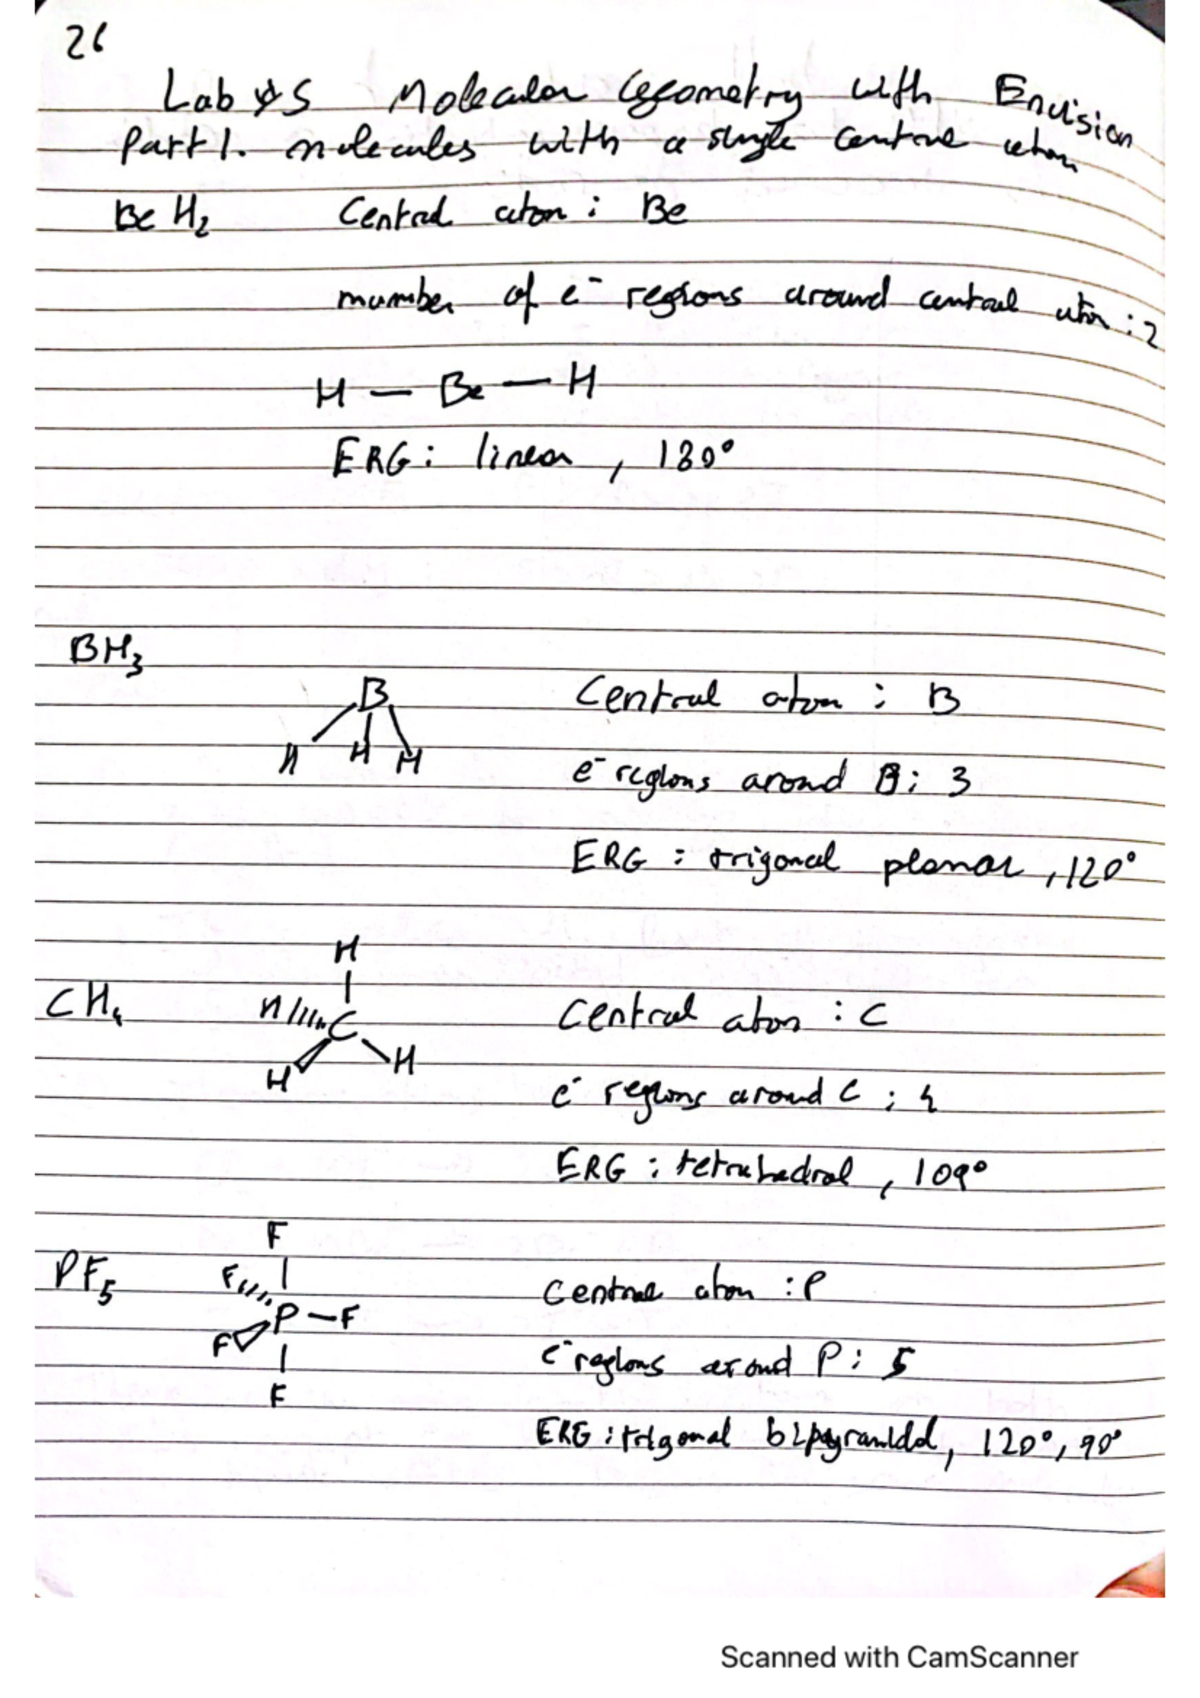 26
Lab #5 Molecular Geometry with Envision
Part 1. molecules with a single central atom
BeH₂ Central atom : Be
number of e⁻ regions around central atom : 2
H — Be — H
ERG : linear , 180°
BH₃
B
H H H
Central atom : B
e⁻ regions around B : 3
ERG : trigonal planar , 120°
CH₄
H
H C
H H
Central atom : C
e⁻ regions around C : 4
ERG : tetrahedral , 109°
PF₅
F
F
P — F
F
F
Central atom : P
e⁻ regions around P : 5
ERG : trigonal bipyramidal , 120° , 90°
Scanned with CamScanner